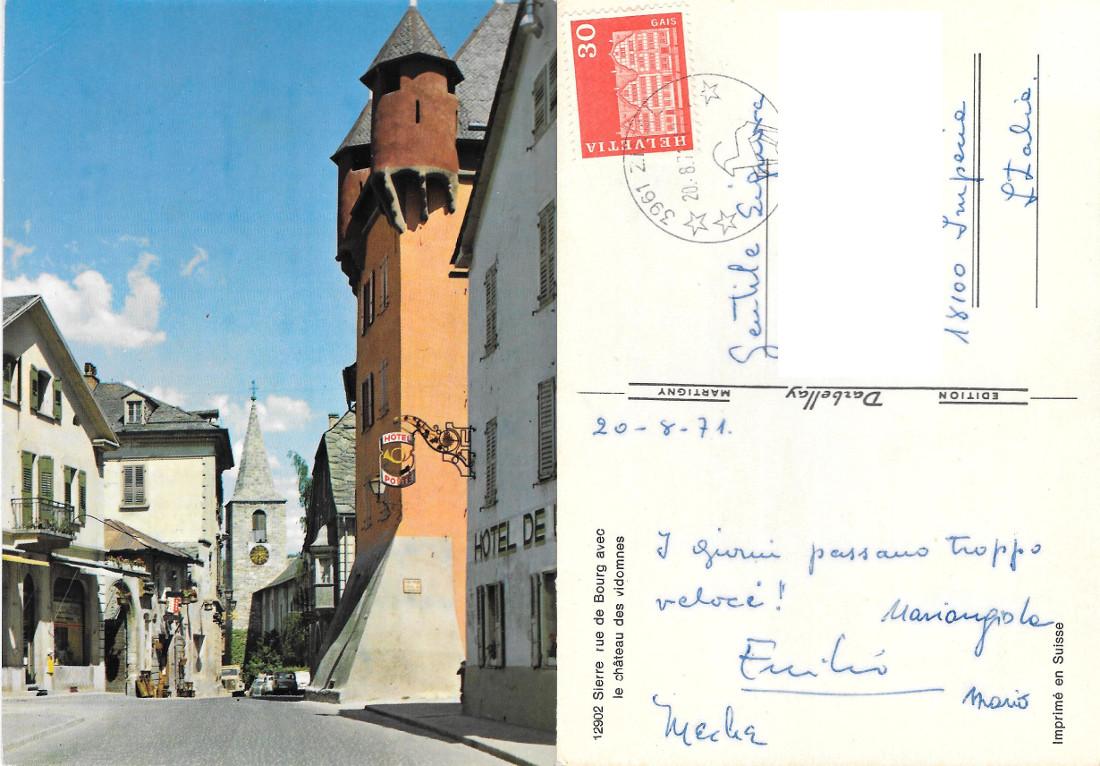 HOTEL
POSTE
HOTEL DE
30
GAIS
HELVETIA
3961
20.8.7
Gentile Signora
18100 Imperia
Italia.
EDITION Darbellay MARTIGNY
20-8-71.
12902 Sierre rue de Bourg avec
le château des vidomnes
I giorni passano troppo
veloci!
Mariangiola
Emilio
Mario
Imprimé en Suisse